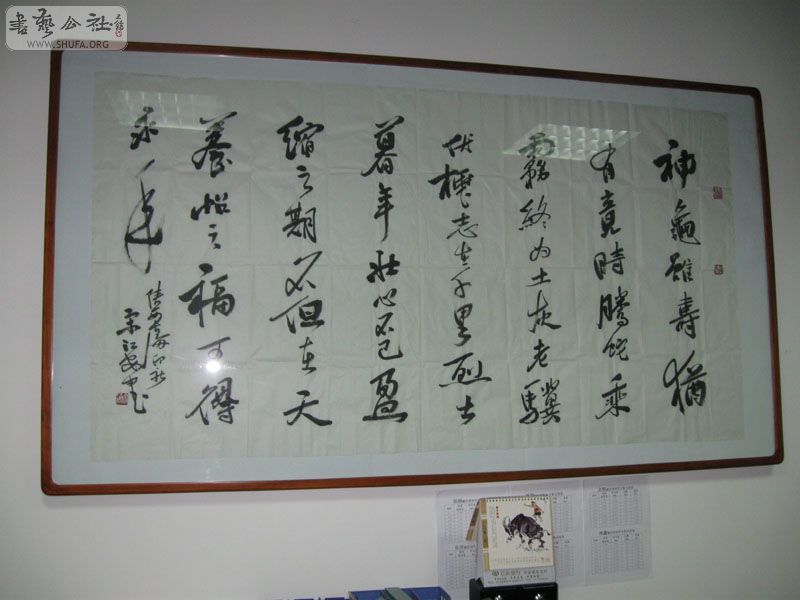 神龜雖壽猶
有竟時騰蛇乘
霧終為土灰老驥
伏櫪志在千里烈士
暮年壯心不已盈
縮之期不但在天
養怡之福可得
永年
書藝公社
WWW.SHUFA.ORG